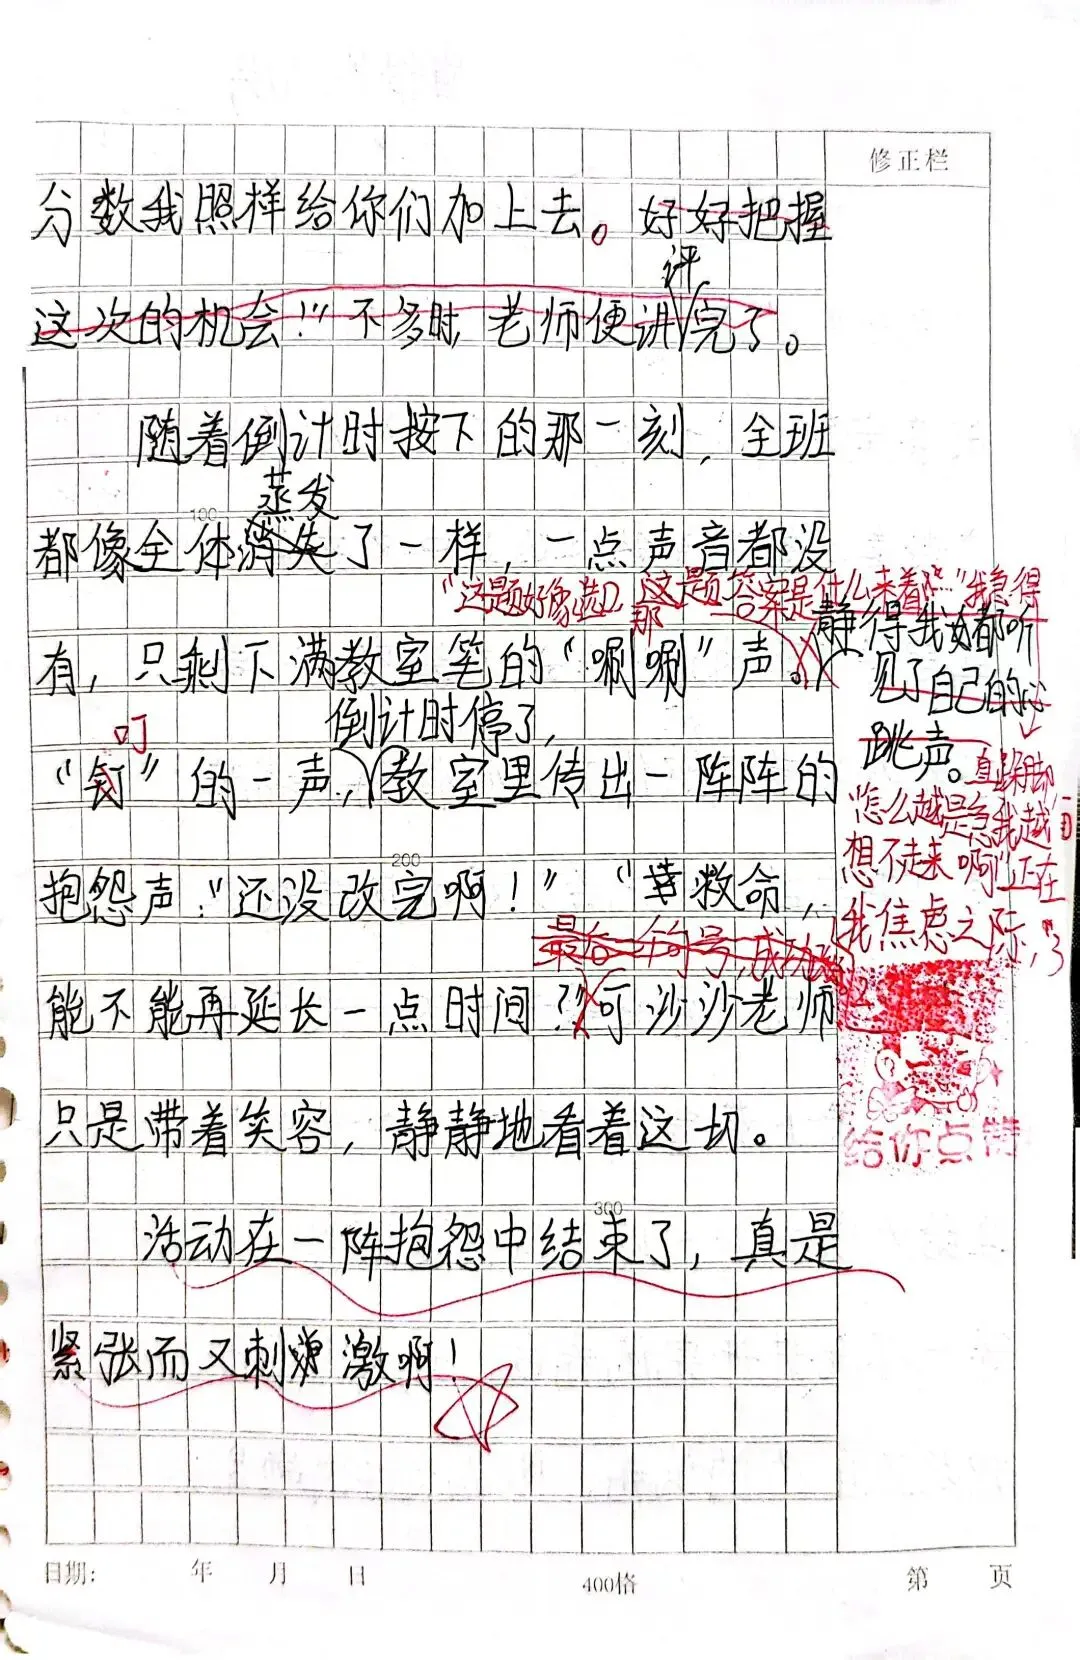 修正栏
分数我照样给你们加上去。好好把握
评
这次的机会!”不多时,老师便讲完了。
随着倒计时按下的那一刻,全班
蒸发
100
都像全体消失了一样,一点声音都没
“这题好像选 这题答案是什么来着 ”我急得
那
有,只剩下满教室笔的“唰唰”声。
静得我 都听
见了自己的心
跳声。
直跺脚,
叮
倒计时停了,
“钉”的一声,教室里传出一阵阵的
“怎么越是急我越
想不起来啊”正在
我焦虑之际,
200
抱怨声:“还没改完啊!”“救命,
最后 号,成功
能不能再延长一点时间?”可沙沙老师
只是带着笑容,静静地看着这一切。
给你点赞
300
活动在一阵抱怨中结束了,真是
紧张而又刺激啊!
日期: 年 月 日
400格
第 页